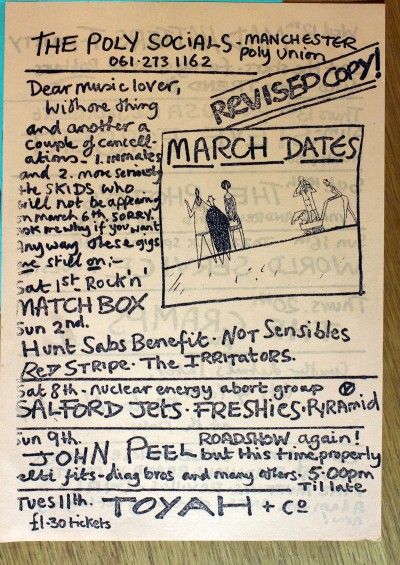 THE POLY SOCIALS - MANCHESTER
Poly Union
061-273 1162
REVISED COPY!
Dear music lover,
With one thing
and another a
couple of cancell-
ations - 1. inmates
and 2. more seriously
the SKIDS who
will not be appearing
on march 6th. SORRY.
ask me why if you want
Anyway these gigs
are still on:-
MARCH DATES
Sat 1st Rock'n'
MATCHBOX
Sun 2nd.
Hunt Sabs Benefit - NOT Sensibles
RED STRIPE - The IRRITATORS.
Sat 8th - nuclear energy abort group
SALFORD Jets - FRESHIES - PYRAMID
Sun 9th. ROADSHOW again!
JOHN PEEL but this time, properly
elti fits - diag bros and many others - 5:00pm
Til late
Tues 11th. TOYAH + Co
£1-30 tickets